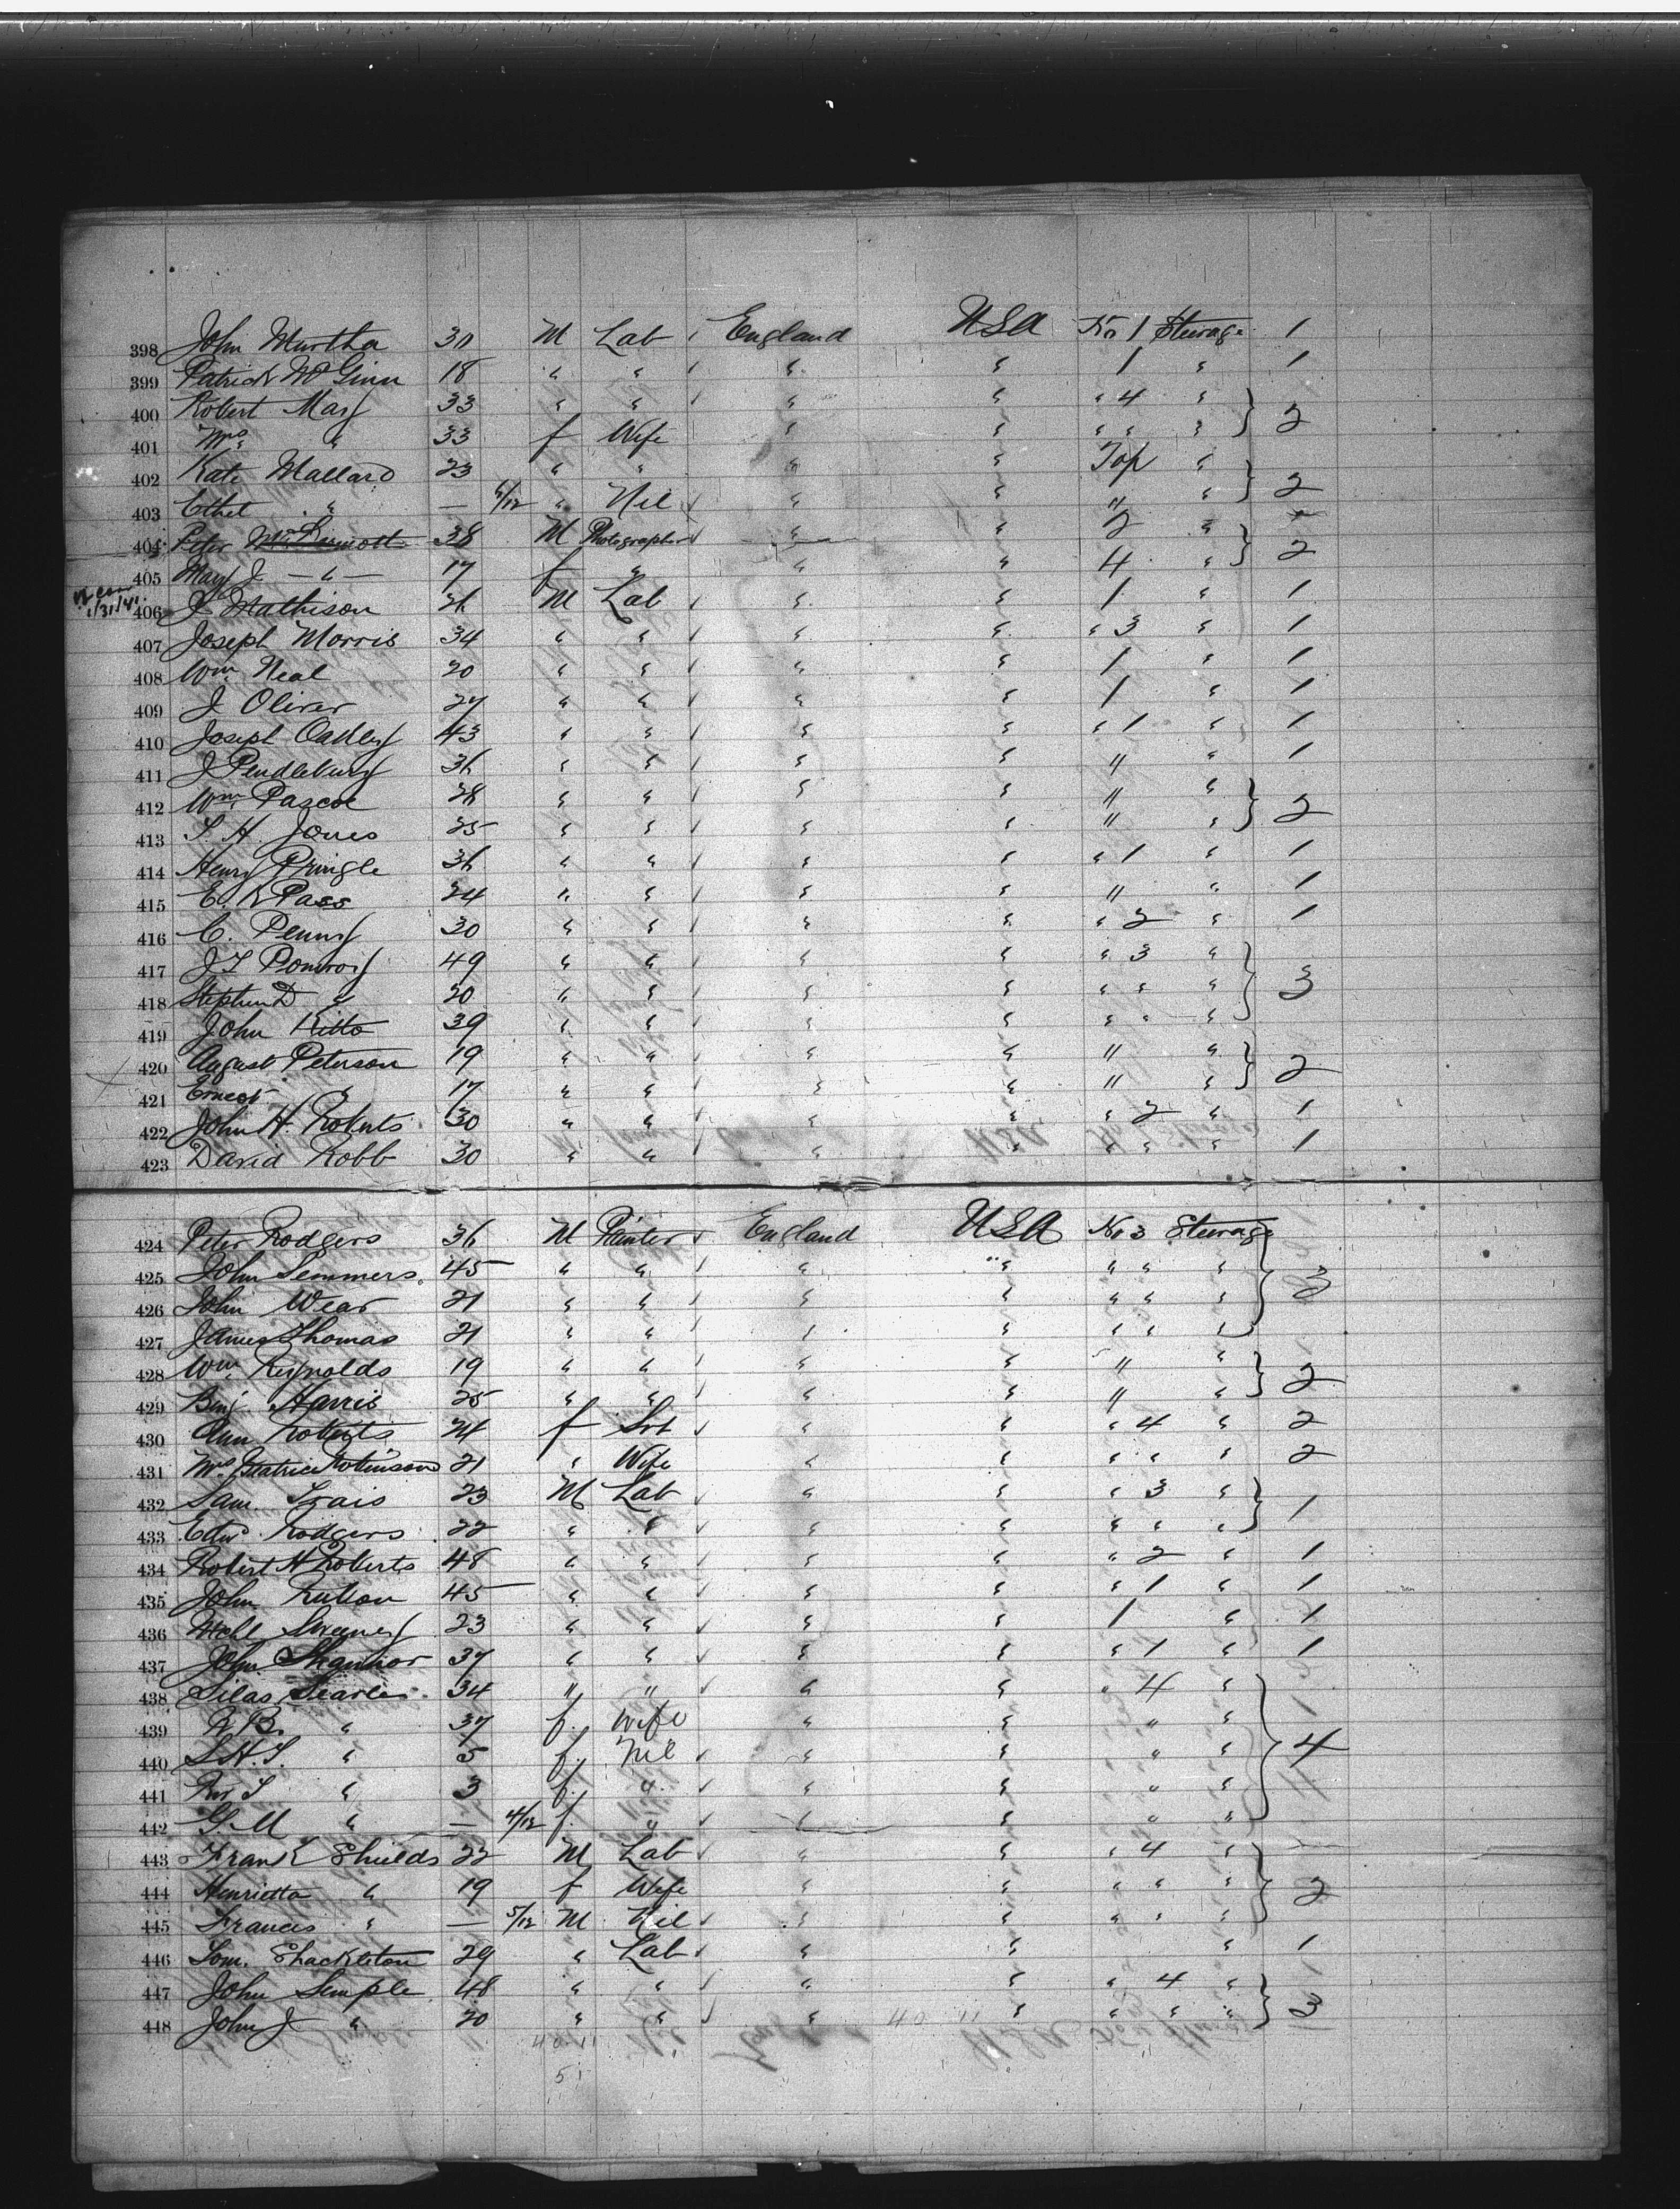 398 John Murtha 30 M Lab England USA No 1 Steerage 1
399 Patrick McGinn 18 " " " " 1 " 1
400 Robert May 33 " " " " " 4 " 2
401 Mrs " 33 f Wife " " " " "
402 Kate Mallard 23 " " " " Top " 2
403 Ethel " — /12 " Nil " " " "
404 Peter McDermott 38 M Photographer " " 2 " 2
405 Mary J — " — 17 f " " " 4 "
1/31/41
406 J Mathison M Lab " " 1 " 1
407 Joseph Morris 34 " " " " " 3 " 1
408 Wm Neal 20 " " " " 1 " 1
409 J Oliver 27 " " " " 1 " 1
410 Joseph Oakley 43 " " " " " 1 " 1
411 J Pendlebury 36 " " " " " " 1
412 Wm Pascoe 28 " " " " " " 2
413 S. H. Jones 25 " " " " " "
414 Henry Pringle 36 " " " " " 1 " 1
415 E. K Pass 24 " " " " " " 1
416 C. Penny 30 " " " " " 2 " 1
417 J T Pomroy 49 " " " " " 3 " 3
418 Stephen D " 20 " " " " " " "
419 John Kitto 39 " " " " " " "
420 August Peterson 19 " " " " " " 2
421 Ernest " 17 " " " " " "
422 John H. Roberts 30 " " " " " 2 " 1
423 David Robb 30 " " " " " " " 1
424 Peter Rodgers 36 M Painter England USA No 3 Steerage 3
425 John Semmers 45 " " " " " " "
426 John Wear 21 " " " " " " "
427 James Thomas 21 " " " " " " "
428 Wm Reynolds 19 " " " " " " 2
429 Benj Harris 25 " " " " " "
430 Ann Roberts 24 f " " " 4 " 2
431 Mrs Beatrice Robinson 21 " Wife " " " " " 2
432 Sam. 23 M Lab " " " 3 " 1
433 Edw Rodgers 22 " " " " " " "
434 Robert H Roberts 48 " " " " " 2 " 1
435 John 45 " " " " " 1 " 1
436 Michl Sweeney 23 " " " " 1 " 1
437 John 37 " " " " " 1 " 1
438 Silas Searles 34 " " " " " 4 " 4
439 B. " 37 f. Wife " " " "
440 S.H.S. " 5 f. Nil " " " "
441 S " 3 f. " " " " "
442 G. M " — 4/12 f. " " " " "
443 Frank Shields 22 M Lab " " " 4 " 2
444 Henrietta " 19 f Wife " " " " "
445 Francis " — 5/12 M Nil " " " " "
446 Tom. Shackleton 29 " Lab " " " 1
447 John Semple 48 " " " " " 4 " 3
448 John J " 20 " " " " " " "